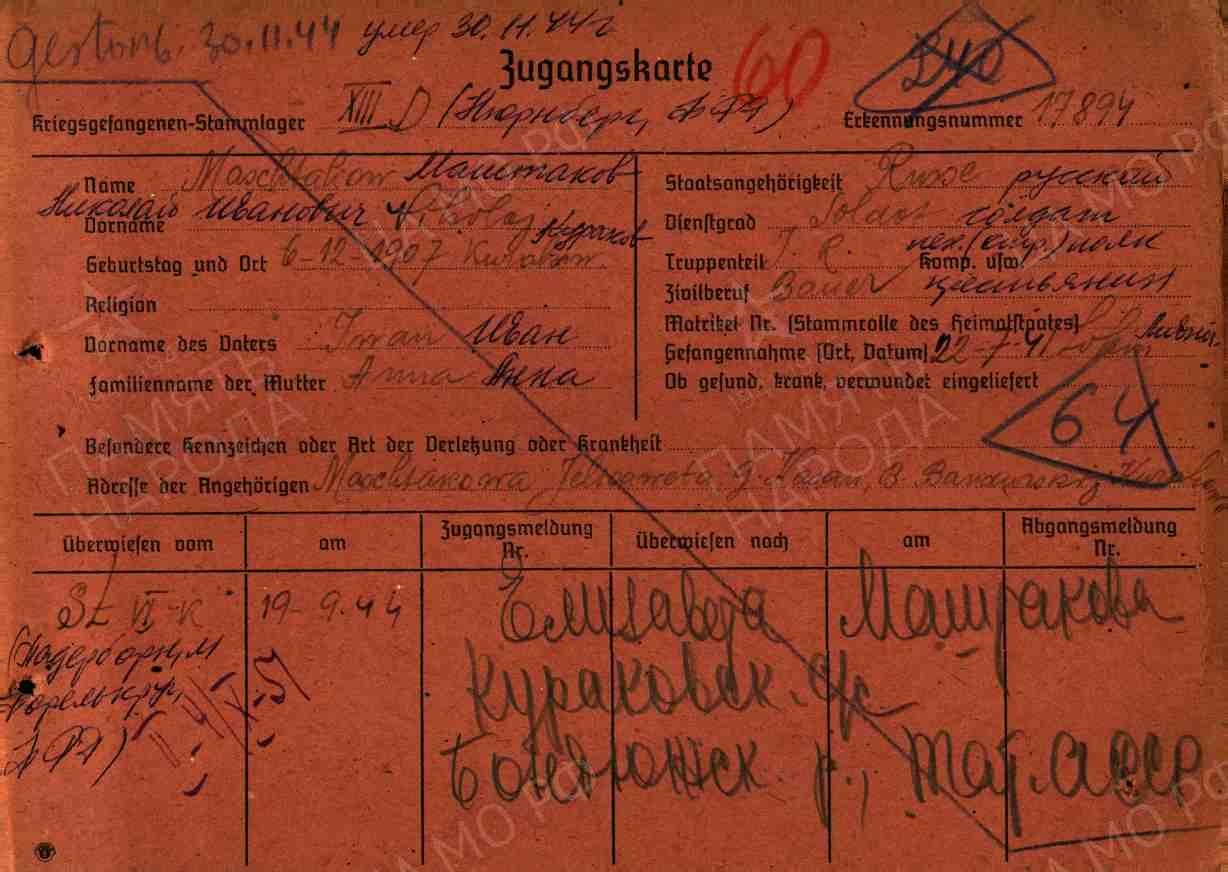 Gestorb. 30.11.44 умер 30.11.44 г
Zugangskarte 60 240
Kriegsgefangenen-Stammlager XIII D (Нюрнберг, ФРГ) Erkennungsnummer 17894
Name Maschtakow Маштаков
Николай Иванович
Vorname Nikolaj
Geburtstag und Ort 6-12-1907 Kurakow Кураков
Religion
Vorname des Vaters Iwan Иван
Familienname der Mutter Anna Анна
Staatsangehörigkeit Russe русский
Dienstgrad Soldat солдат
Truppenteil J. R. Komp. usw. пех. (стр.) полк
Zivilberuf Bauer крестьянин
Matrikel Nr. (Stammrolle des Heimatstaates)
Gefangennahme (Ort, Datum) 22-7-41
Ob gesund, krank, verwundet eingeliefert
64
Besondere Kennzeichen oder Art der Verletzung oder Krankheit
Adresse der Angehörigen Maschtakowa
Überwiesen vom am Zugangsmeldung Nr. Überwiesen nach am Abgangsmeldung Nr.
St. VI-K 19-9.44 Елизавета Маштакова
Кураковск. с/с
Бондюжск. р., Тат. АССР
ПАМЯТЬ НАРОДА
ПАМЯТЬ НАРОДА
ЦАМО РФ
ЦАМО РФ